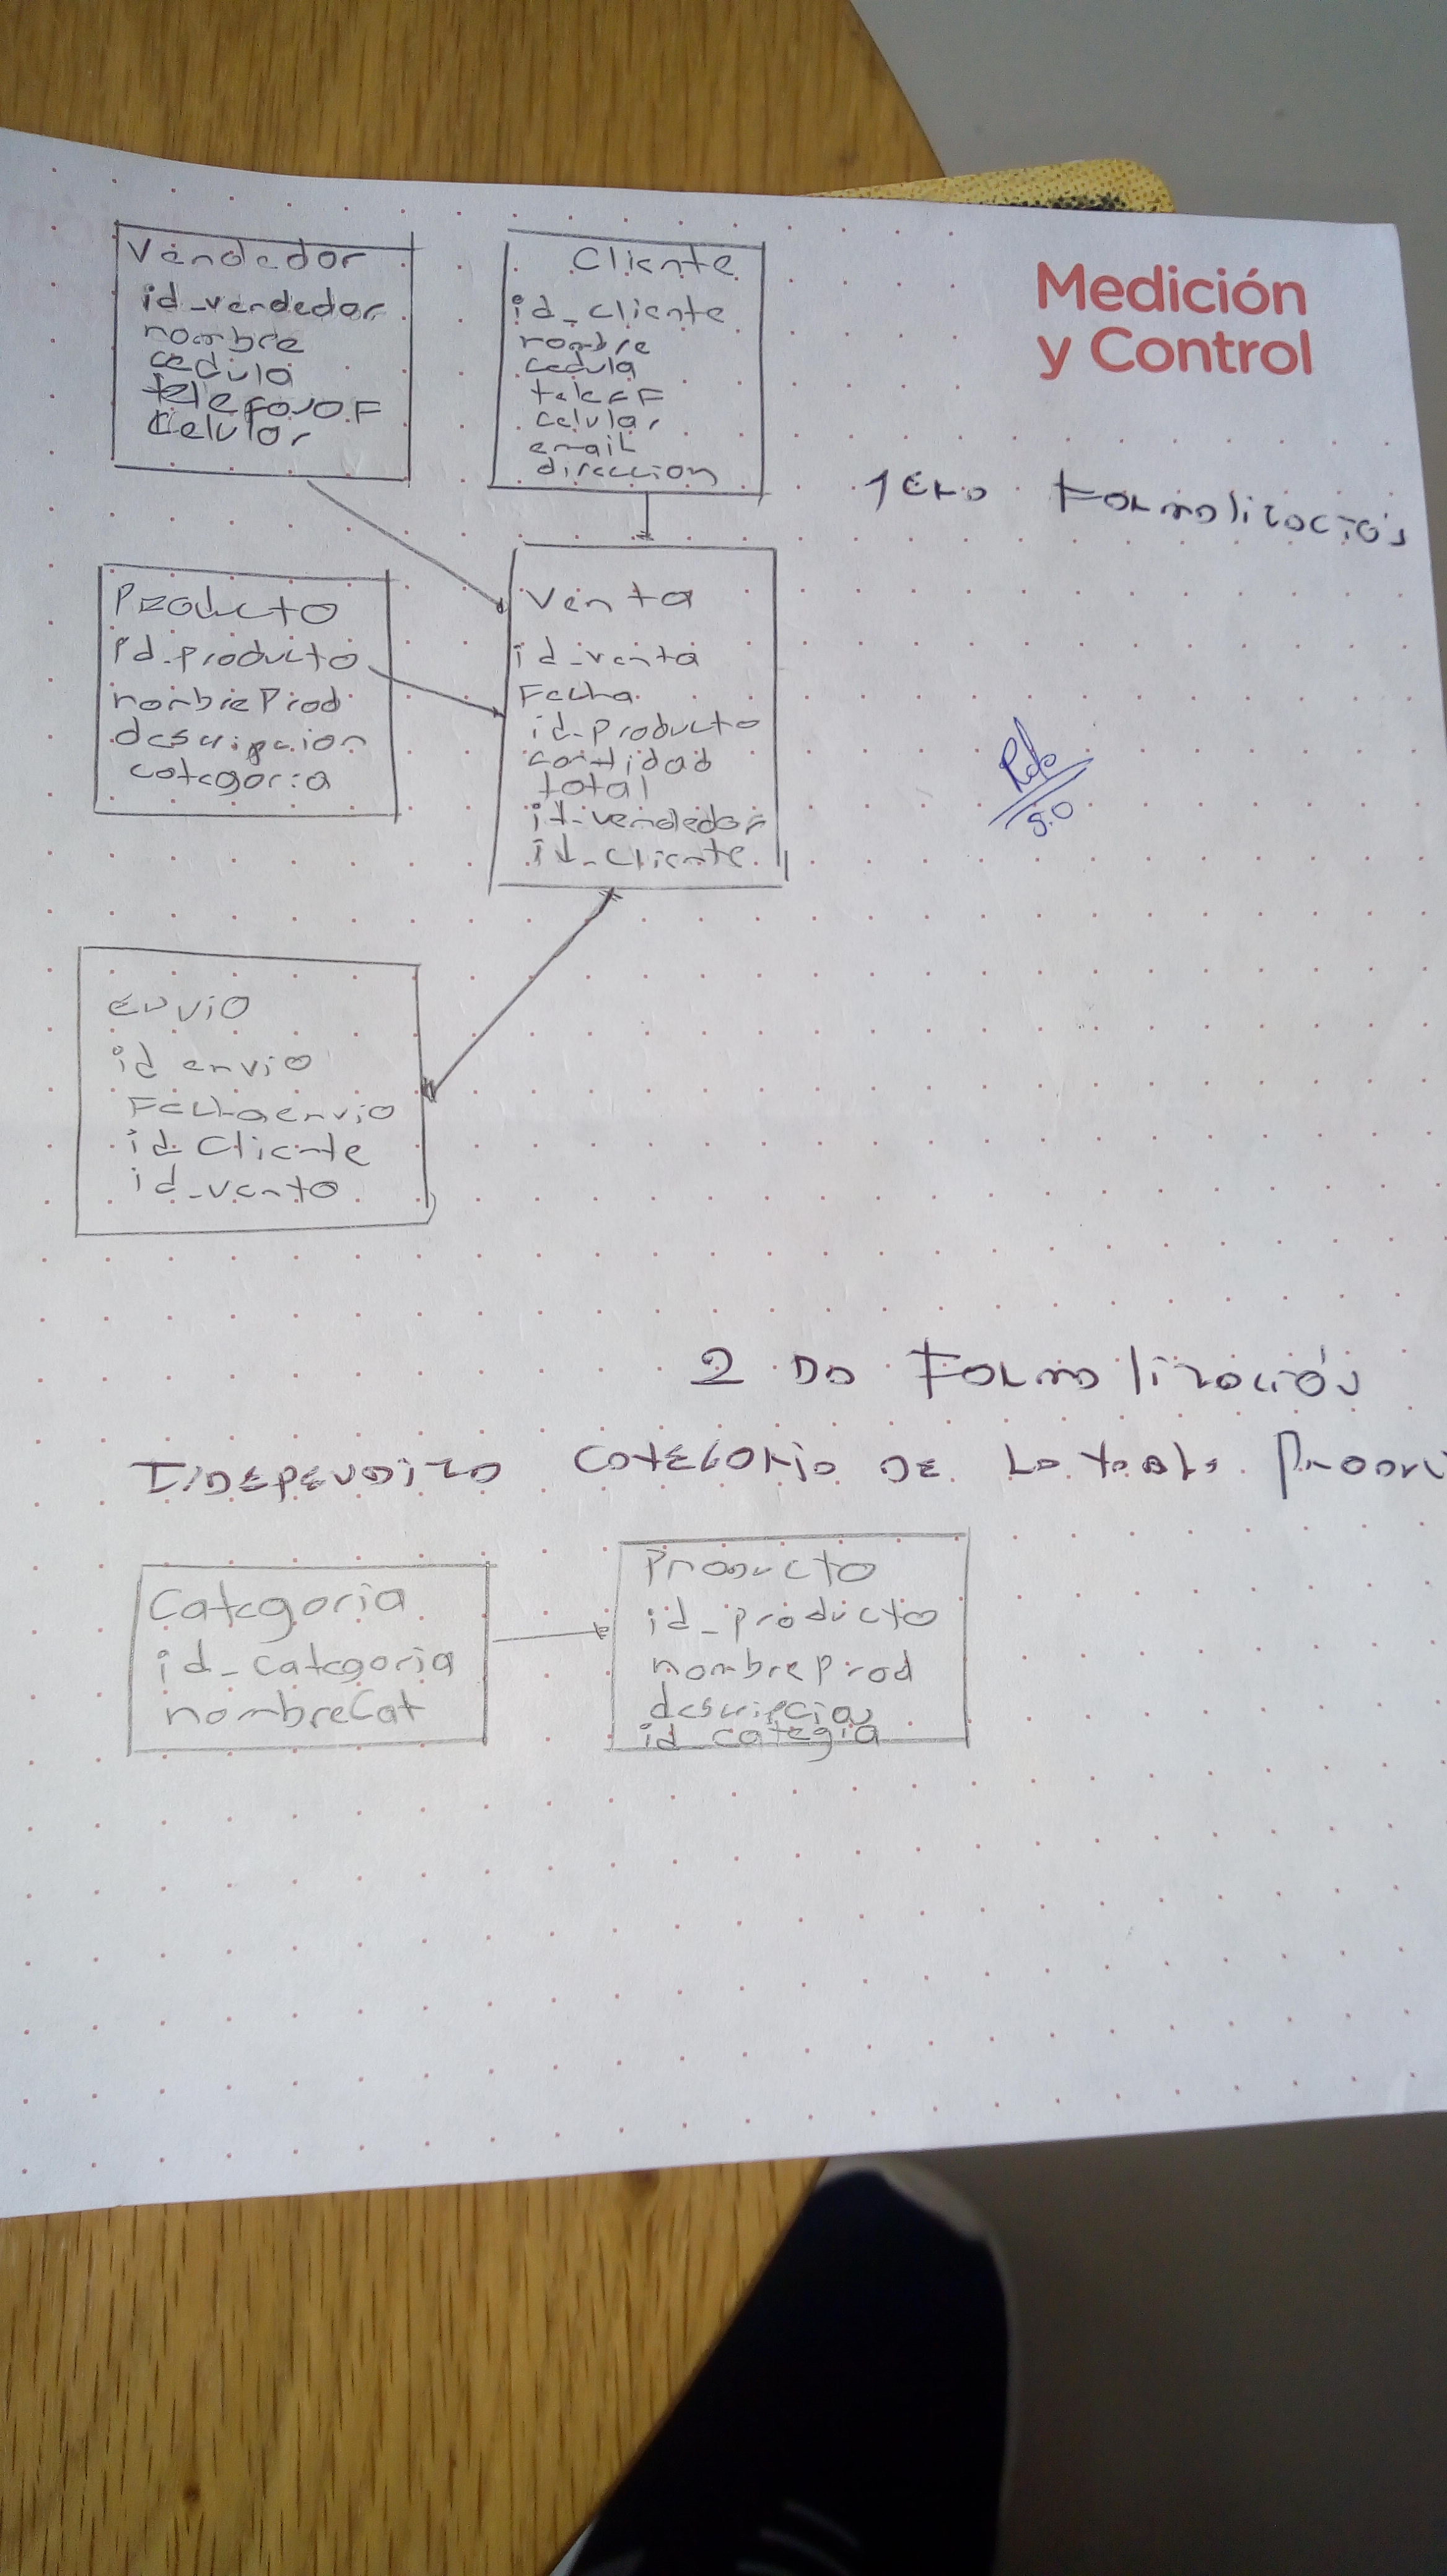 Vendedor
id_vendedor
nombre
cedula
telefonoF
Celular
Cliente
id_cliente
nombre
cedula
teleFF
celular
email
direccion
Medición
y Control
1ERO Formalización
Producto
id_producto
nombreProd
descripcion
categoria
Venta
id_venta
Fecha
id_producto
cantidad
total
id_vendedor
id_cliente
5.0
Envio
id envio
Fechaenvio
id_Cliente
id_venta
2 DO Formalización
Independizo categoria de la tabla Produ
Categoria
id_categoria
nombreCat
Producto
id_producto
nombreProd
descripcion
id_categia